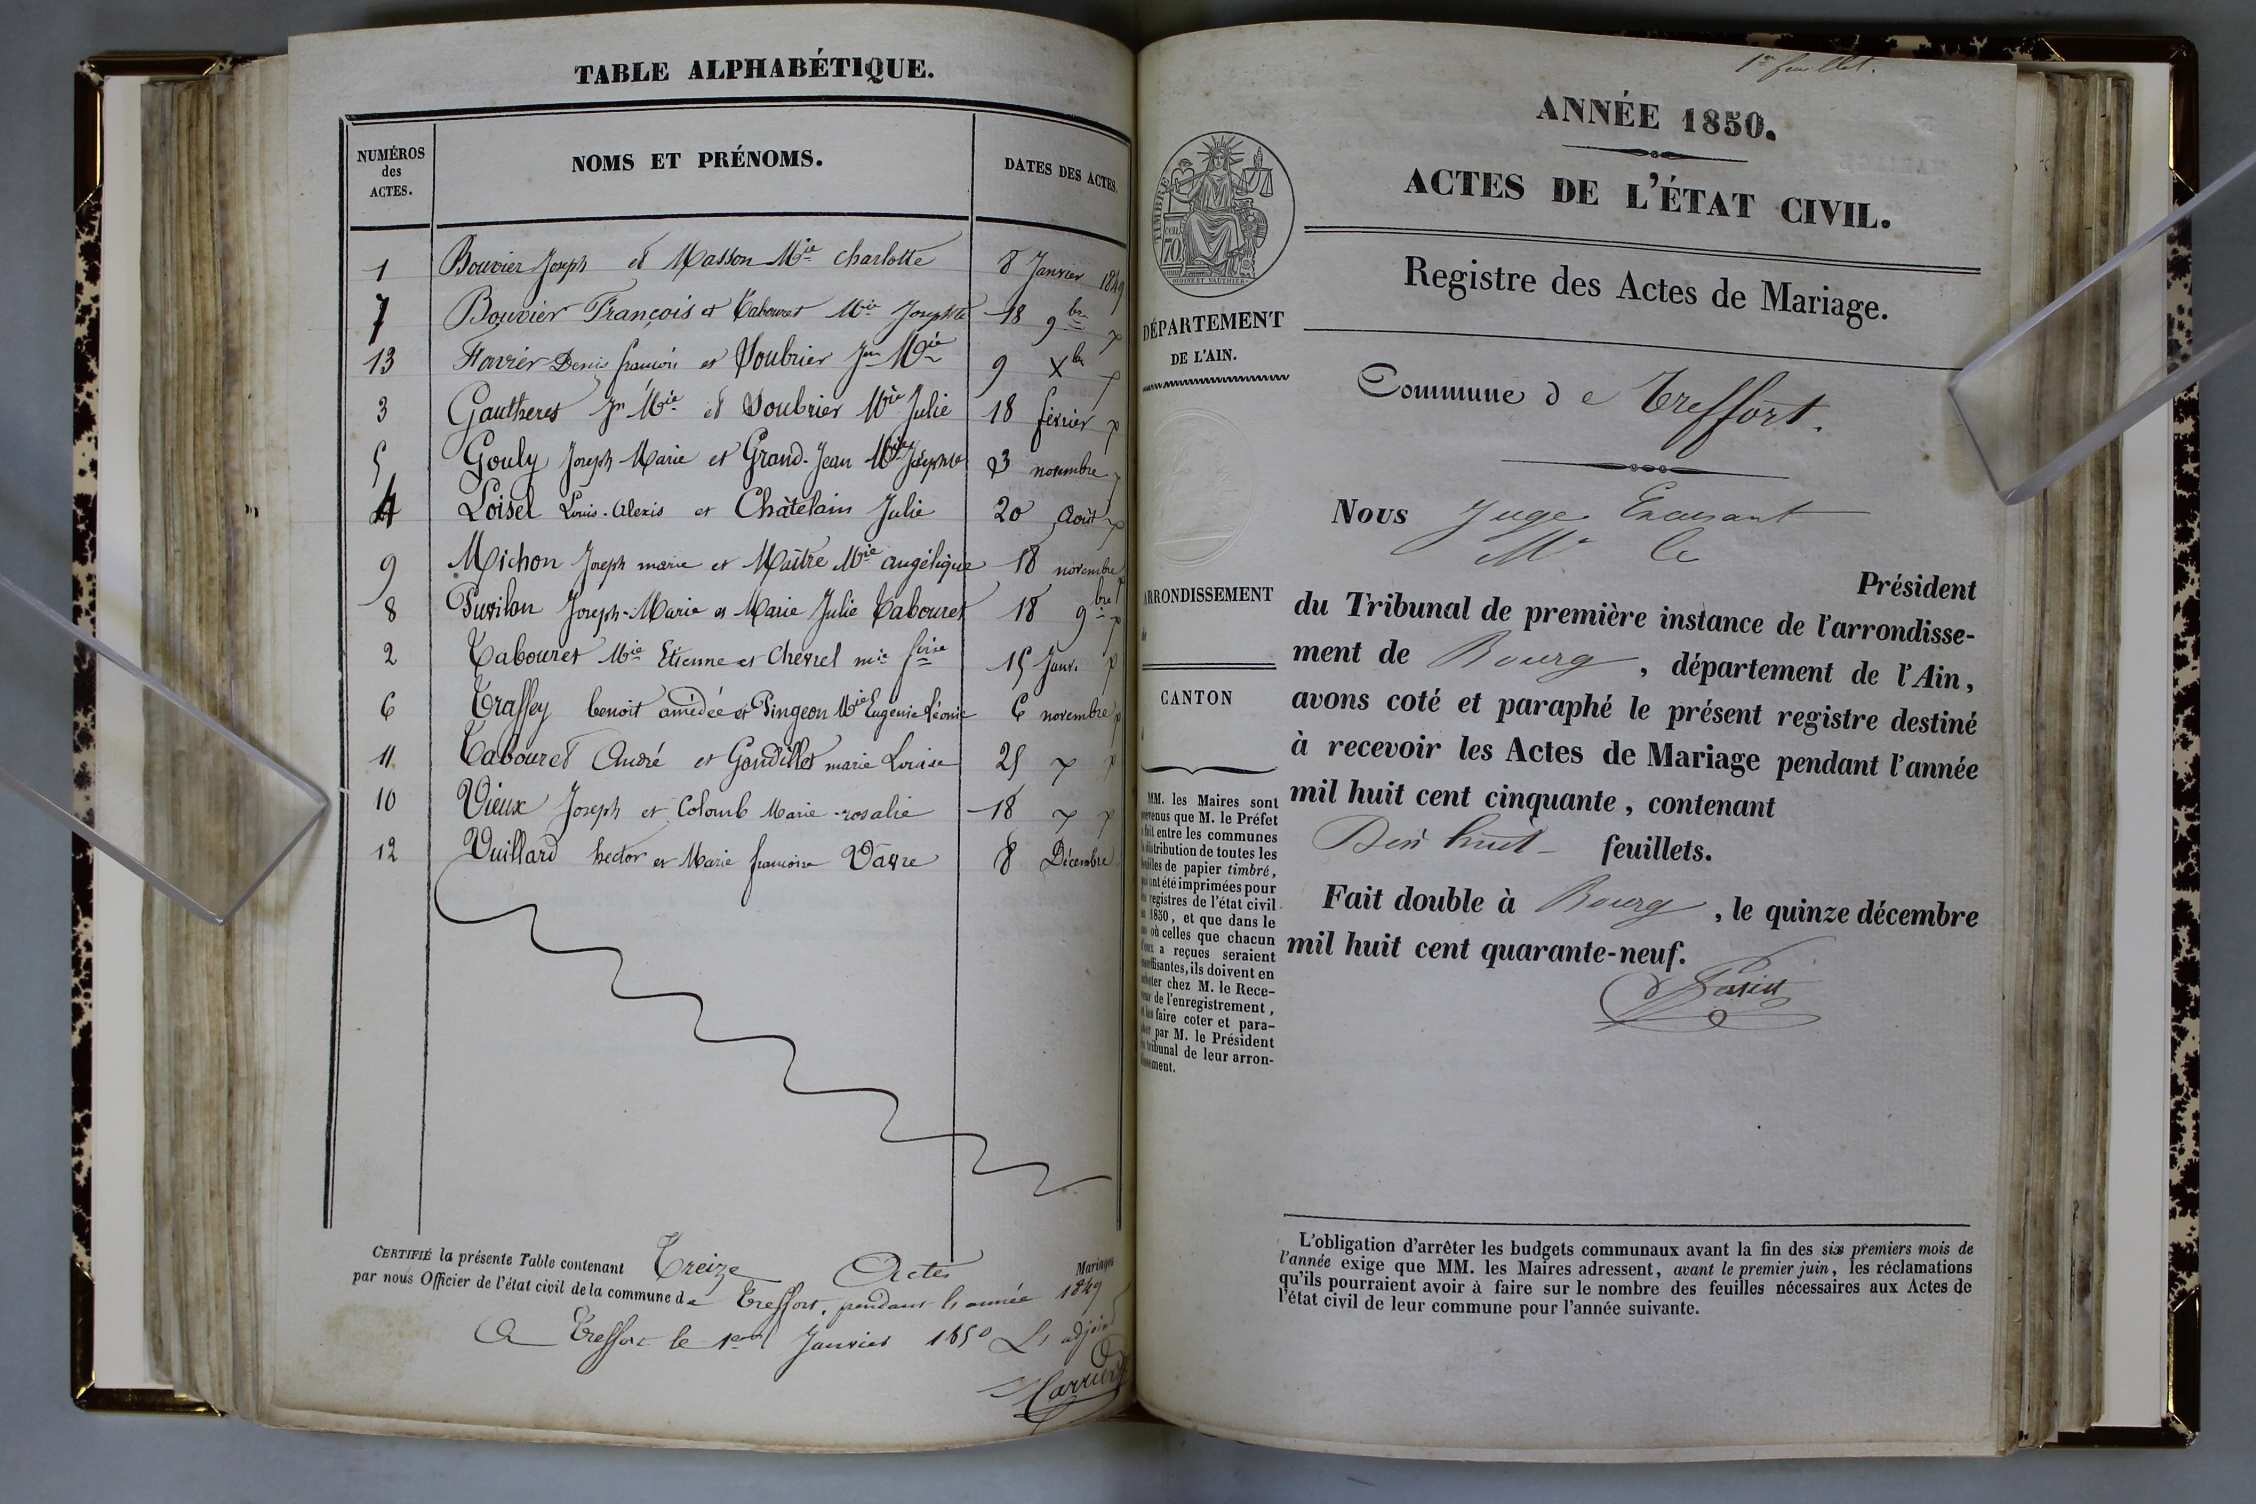 TABLE ALPHABÉTIQUE.
NUMÉROS des ACTES. NOMS ET PRÉNOMS. DATES DES ACTES.
1 Bouvier Joseph et Masson Mie Charlotte 8 Janvier 1849
7 Bouvier François et Tabouret Mie Josephte 18 9bre
13 Denis françois et Soubrier Jne Mie 9 Xbre
3 Gautheret Jh Mie et Soubrier Mie Julie 18 février
5 Gouly Joseph Marie et Grand-Jean Mie Josephte 3 novembre
4 Loisel Louis-Alexis et Châtelain Julie 20 Août
9 Michon Joseph marie et Maître Mie angélique 18 novembre
8 Puvilon Joseph-Marie et Marie Julie Tabouret 18 9bre
2 Tabouret Mie Etienne et Chevrel mie fçoise 15 Janv.
6 Traffey benoit amédée et Pingeon Mie Eugenie Léonie 6 novembre
11 Tabouret André et Gondillet marie Louise 25
10 Vieux Joseph et Colomb Marie-rosalie 18
12 Vuillard hector et Marie francoise Vavre 8 Décembre
CERTIFIÉ la présente Table contenant Treize Actes Mariages
par nous Officier de l'état civil de la commune de Treffort, pendant l'année 1849
A Treffort le 1er Janvier 1850 L'adjoint
1er feuillet.
ANNÉE 1850.
ACTES DE L'ÉTAT CIVIL.
Registre des Actes de Mariage.
TIMBRE
70
DÉPARTEMENT
DE L'AIN.
ARRONDISSEMENT
CANTON
MM. les Maires sont
prévenus que M. le Préfet
a fait entre les communes
la distribution de toutes les
feuilles de papier timbré,
qui ont été imprimées pour
les registres de l'état civil
de 1850, et que dans le
cas où celles que chacun
d'eux a reçues seraient
insuffisantes, ils doivent en
acheter chez M. le Rece-
veur de l'enregistrement,
et les faire coter et para-
pher par M. le Président
du tribunal de leur arron-
dissement.
Commune de Treffort.
Nous Juge Encusant
Mr le
Président
du Tribunal de première instance de l'arrondisse-
ment de Bourg, département de l'Ain,
avons coté et paraphé le présent registre destiné
à recevoir les Actes de Mariage pendant l'année
mil huit cent cinquante, contenant
Dix huit feuillets.
Fait double à Bourg, le quinze décembre
mil huit cent quarante-neuf.
L'obligation d'arrêter les budgets communaux avant la fin des six premiers mois de
l'année exige que MM. les Maires adressent, avant le premier juin, les réclamations
qu'ils pourraient avoir à faire sur le nombre des feuilles nécessaires aux Actes de
l'état civil de leur commune pour l'année suivante.